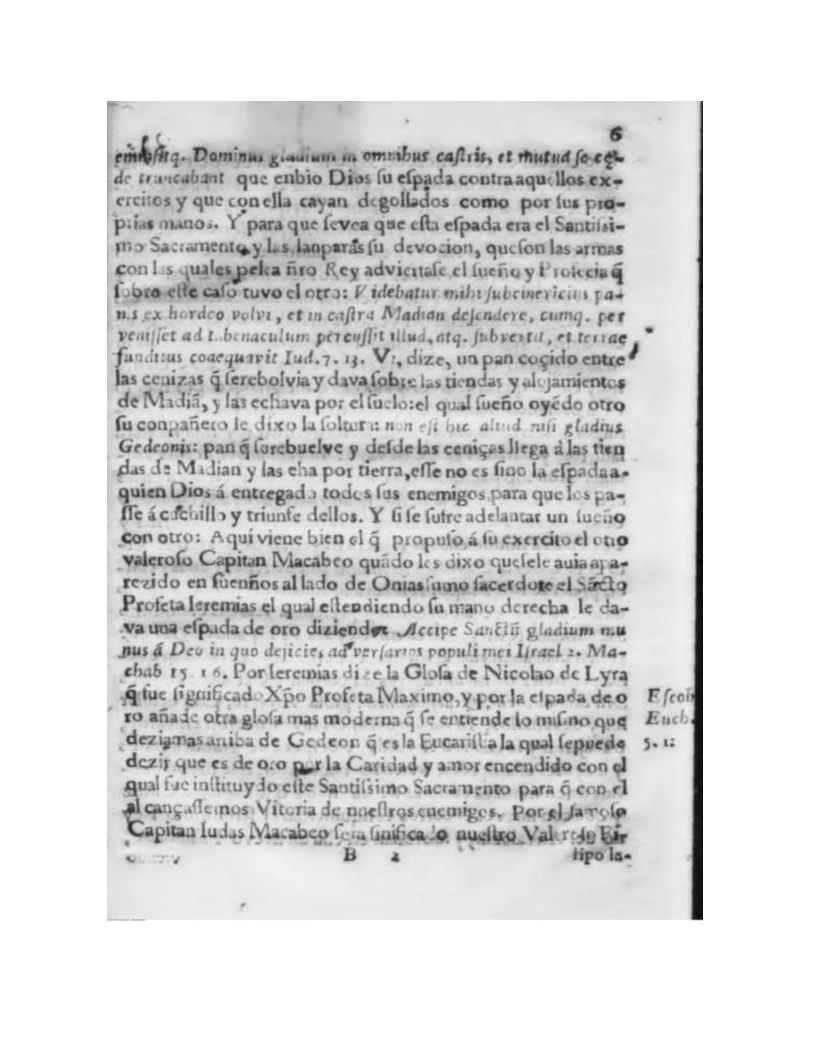 6
Dominus gladium in omnibus caſtris, et mutua ſe cę-
de truncabant que enbio Dios ſu eſpada contra aquellos ex-
ercitos y que con ella cayan degollados como por ſus pro-
prias manos. Y para que ſevea que eſta eſpada era el Santiſsi-
mo Sacramento y las lanparas ſu devocion, queſon las armas
con las quales pelea ñro Rey advientaſe el ſueño y Profecia q̃
ſobre eſte caſo tuvo el otro: Videbatur mihi ſubcinericius pa-
nis ex hordeo volvi, et in caſtra Madian deſendere, cumq. per
veniſſet ad tabenaculum percuſſit illud, atq. ſubvertit, et terrae
funditus coaequavit Iud. 7. 13. Vi, dize, un pan coçido entre
las cenizas q̃ ſerebolvia y dava ſobre las tiendas y alojamientos
de Madiã, y las echava por el ſuelo: el qual ſueño oyẽdo otro
ſu conpañero le dixo la ſoltura: non eſt hic aliud niſi gladius
Gedeonis: pan q̃ ſerebuelve y deſde las ceniças llega á las tien
das de Madian y las eha por tierra, eſſe no es ſino la eſpada a-
quien Dios á entregado todos ſus enemigos para que los pa-
ſſe á cuchillo y triunfe dellos. Y ſi ſe ſufre adelantar un ſueño
con otro: Aqui viene bien el q̃ propuſo á ſu exercito el otro
valeroſo Capitan Macabeo quãdo les dixo queſele auia apa-
rezido en ſuenños al lado de Onias ſumo ſacerdote el Sãcto
Profeta Ieremias el qual eſtendiendo ſu mano derecha le da-
va una eſpada de oro diziendo: Accipe Sanctũ gladium mu
nus á Deo in quo dejicies adverſarios populi mei Iſrael 2. Ma-
chab 15. 16. Por Ieremias dize la Gloſa de Nicolao de Lyra
q̃ fue ſignificado Xp̃o Profeta Maximo, y por la eſpada de o
ro añade otra gloſa mas moderna q̃ ſe entiende lo miſmo que
deziamos arriba de Gedeon q̃ es la Eucariſtia la qual ſepuede
dezir que es de oro por la Caridad y amor encendido con el
qual fue inſtituydo eſte Santiſsimo Sacramento para q̃ con el
alcançaſſemos Vitoria de nueſtros enemigos. Por el famoſo
Capitan Iudas Macabeo ſera ſinificado nueſtro Valeroſo
B 2
lipo la-
Eſcob
Euch.
5. 1: